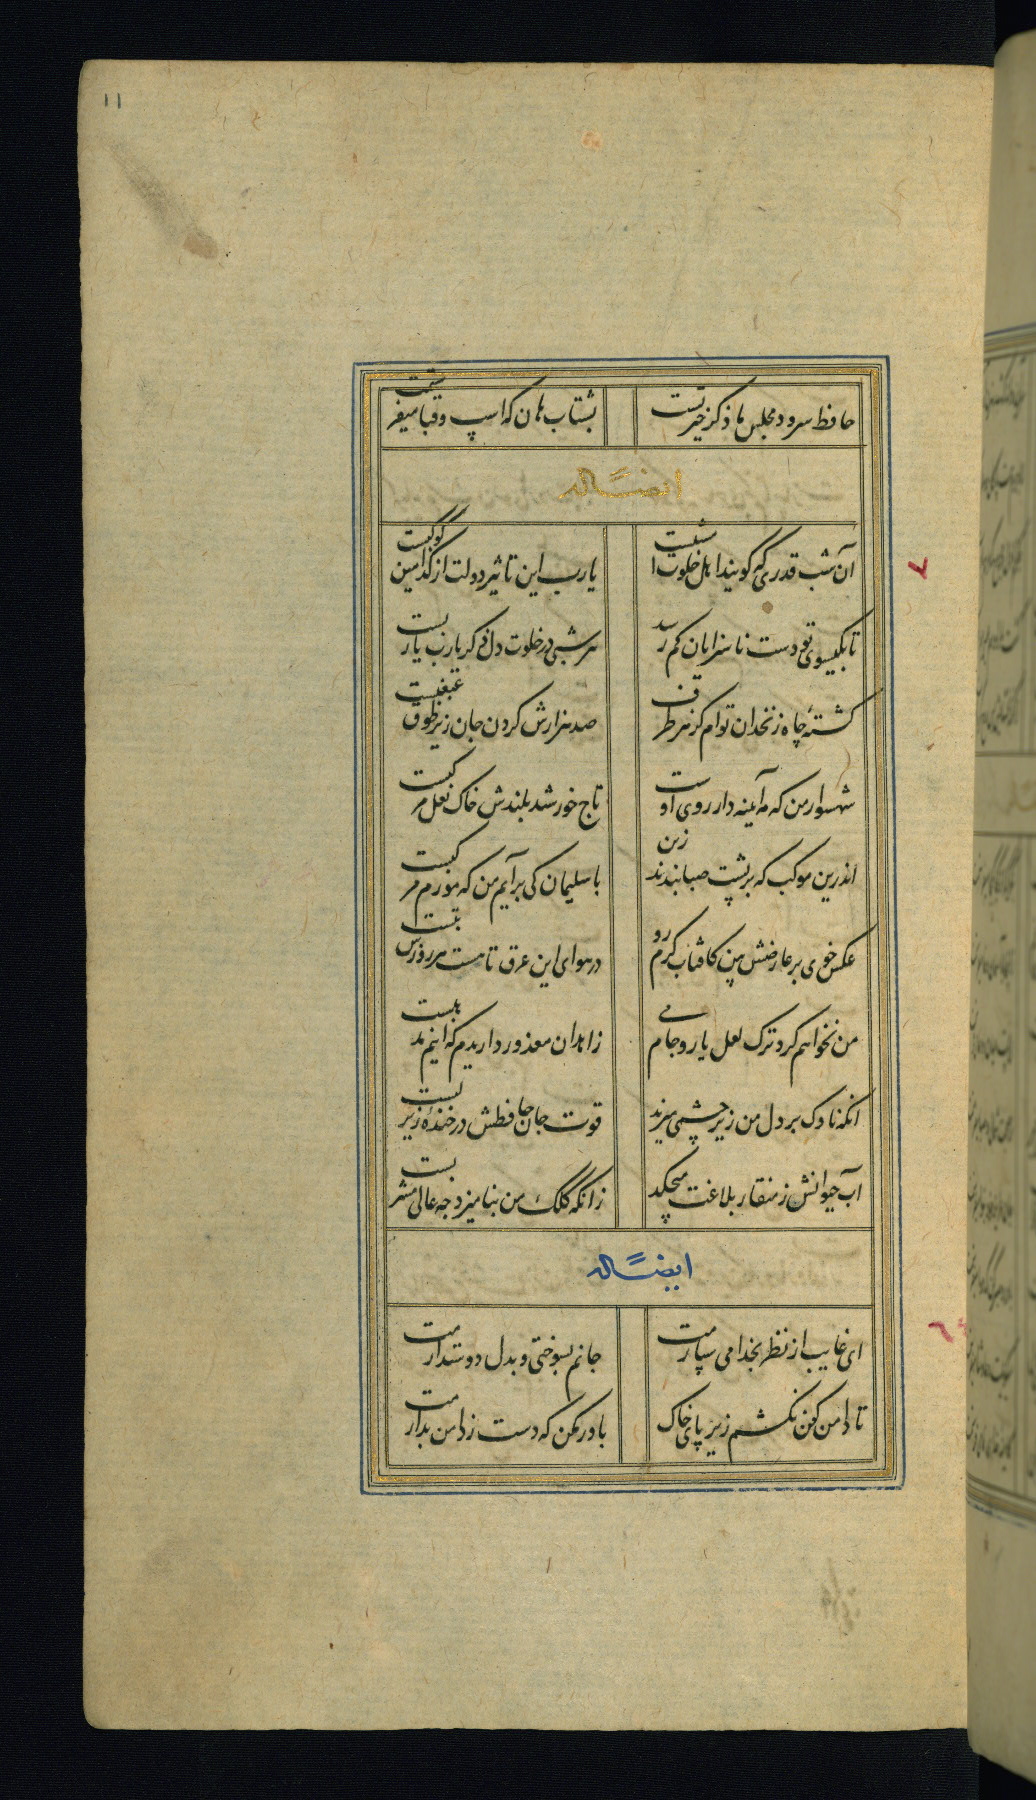 ۱۱
حافظ سرود مجلس ما ذکر خیر تست بشتاب هان که اسپ و قبا میفرستمت
ایضاً له
آن شب قدری که گویند اهل خلوت امشبست یارب این تاثیر دولت از کدامین کوکبست
تا بگیسوی تو دست ناسزایان کم رسد هر شبی در خلوت دل ذکر یارب یاربست
کشتهٔ چاه زنخدان توام کز هر طرف صد هزارش گردن جان زیر طوق غبغبست
شهسوار من که مه آینه دار روی اوست تاج خورشید بلندش خاک نعل مرکبست
اندرین موکب که بر پشت صبا بندند زین با سلیمان کی برآیم من که مورم مرکبست
عکس خوی بر عارضش بین کافتاب گرم رو در هوای این عرق تا هست هر روزش تبست
من نخواهم کرد ترک لعل یار و جام می زاهدان معذور داریدم که اینم مذهبست
آنکه ناوک بر دل من زیر چشمی میزند قوت جان حافظش در خندهٔ زیر لبست
آب حیوانش ز منقار بلاغت میچکد زانکه کلک من بنامیزد چه عالی مشربست
ایضاً له
ای غایب از نظر بخدا می سپارمت جانم بسوختی و بدل دوستدارمت
تا دامن کفن نکشم زیر پای خاک باور مکن که دست ز دامن بدارمت